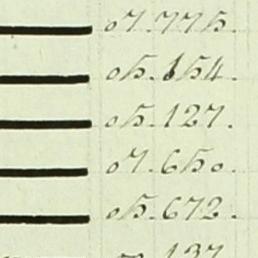 07.775.
05.154.
05.127.
07.650.
05.672.